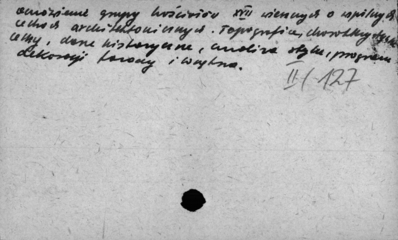 omówienie grupy kościołów XVIII wiecznych o wspólnych
cechach architektonicznych. Topografia, charakterystyczne
cechy, dane historyczne, analiza stylu, program
dekoracji fasady i wnętrza.
II/127